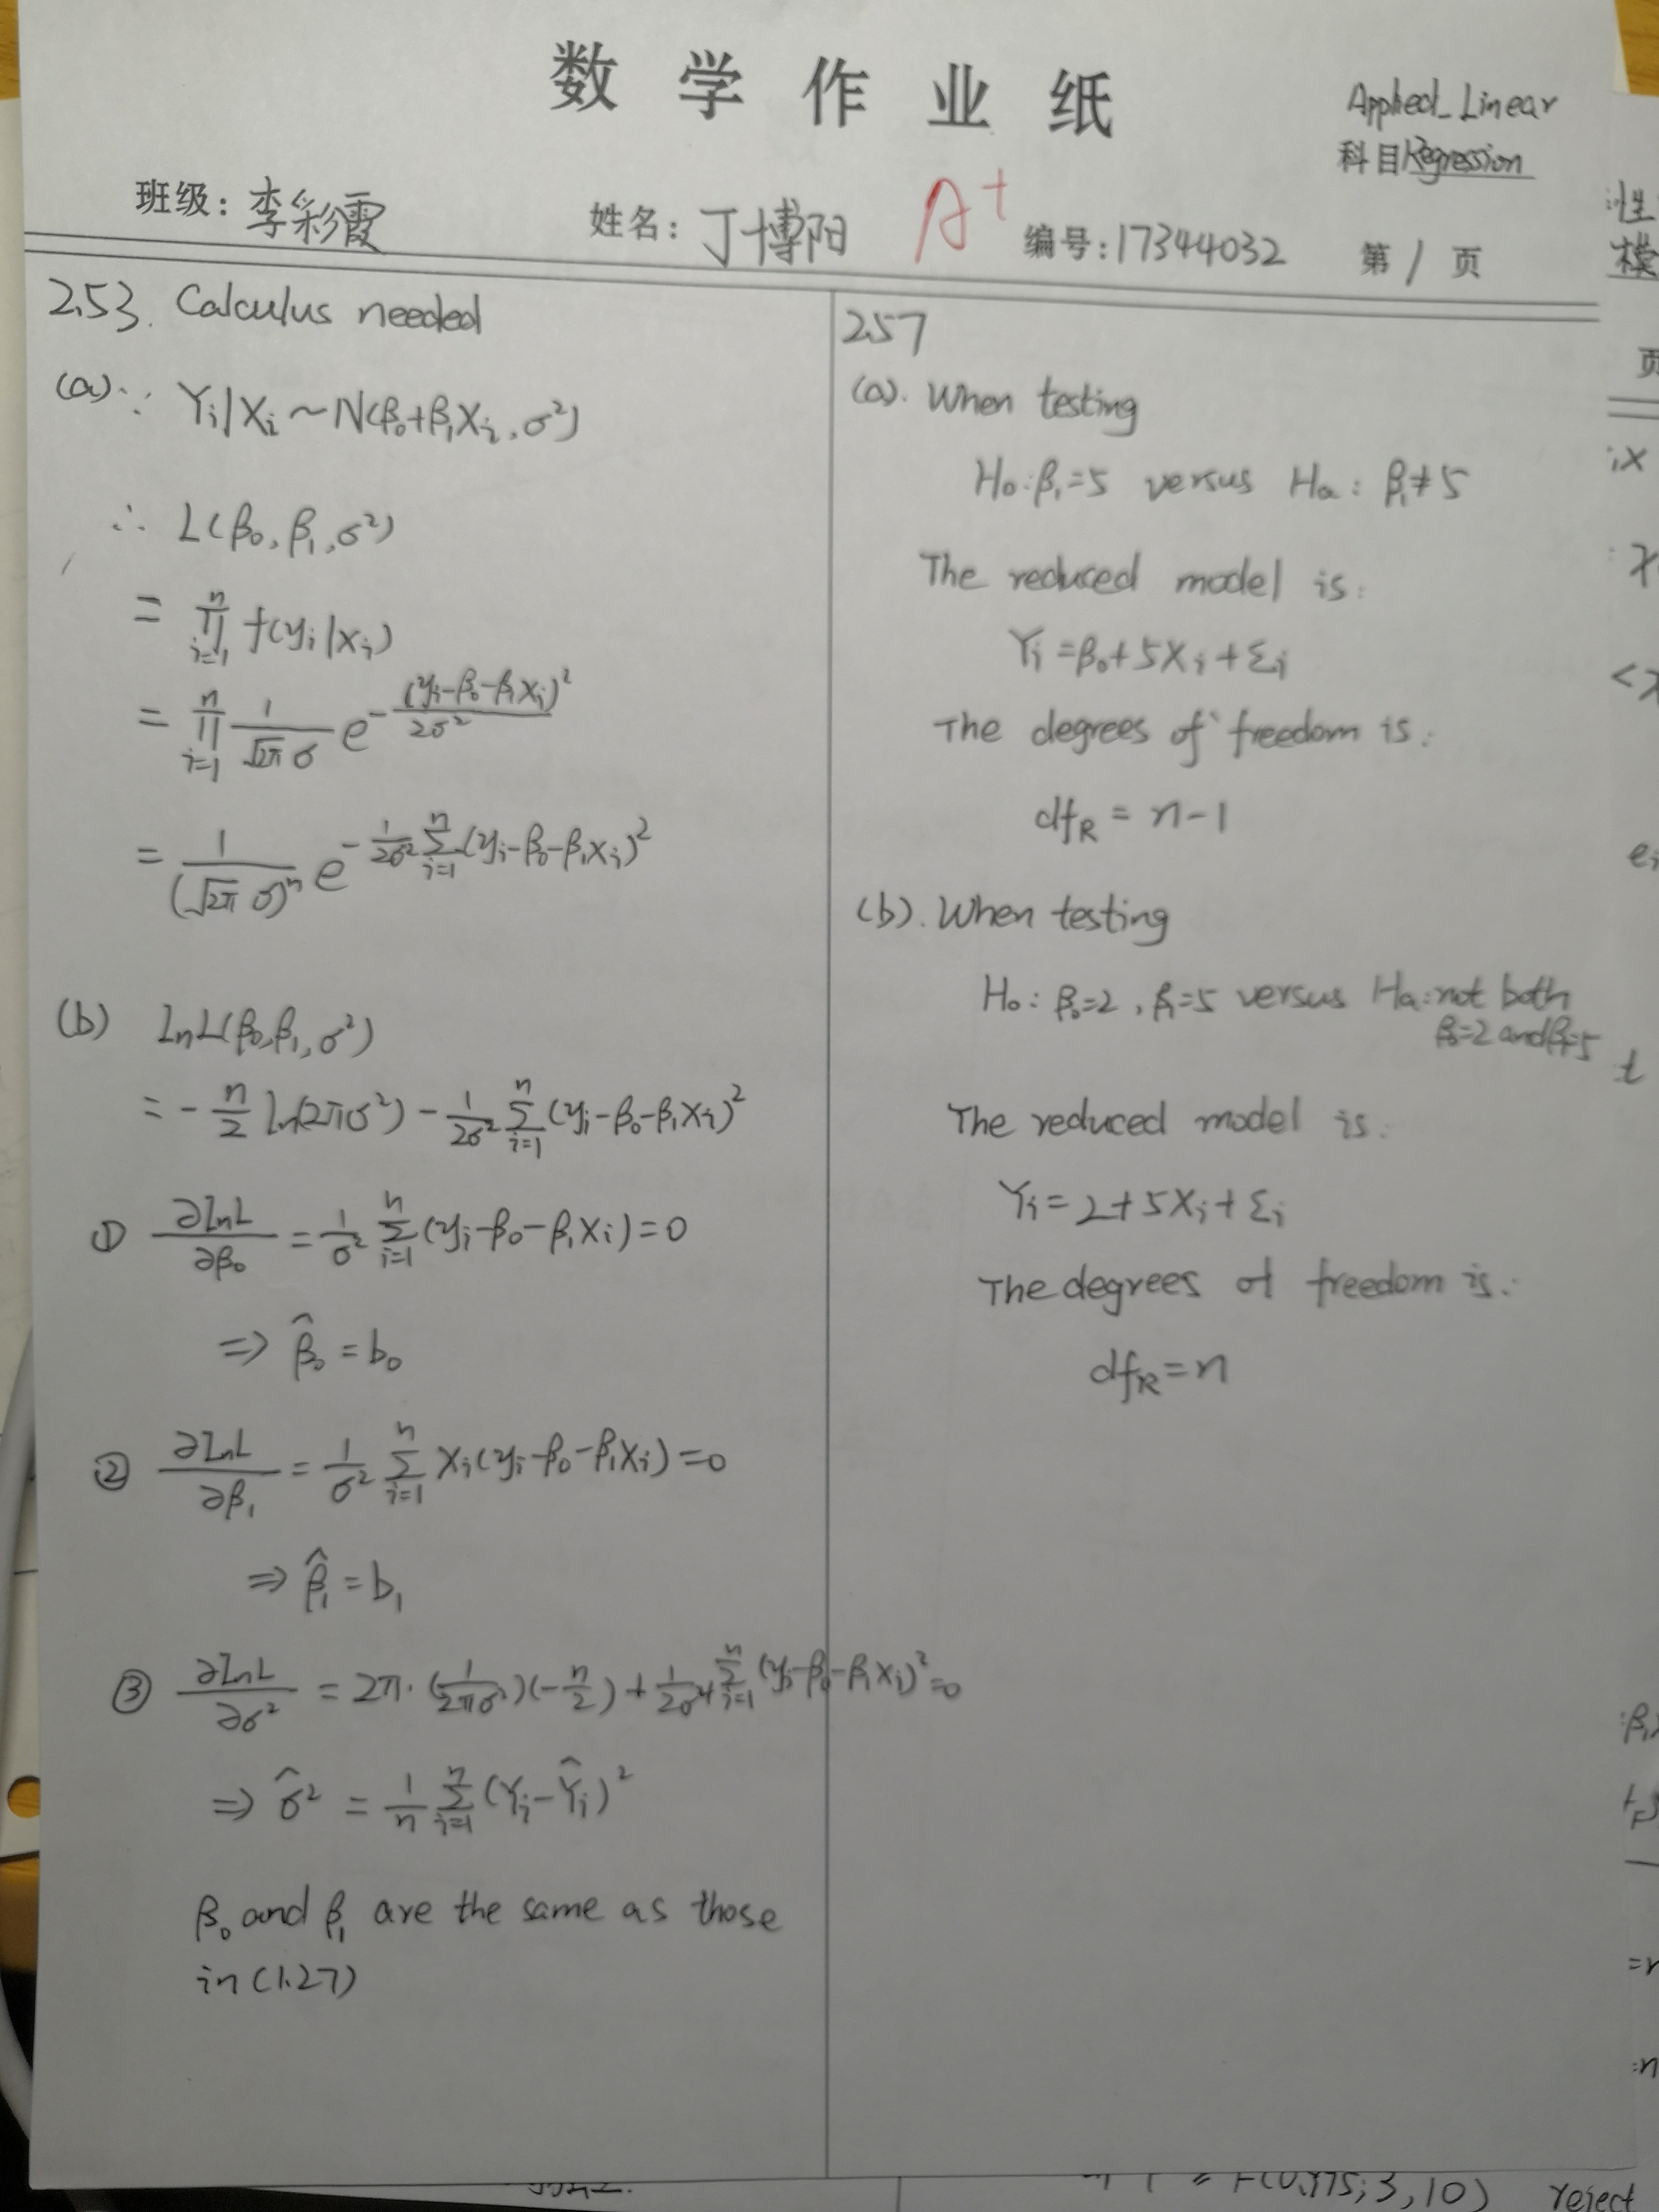 数学作业纸
Applied_Linear
科目Regression
班级: 李彩霞 姓名: 丁博阳 A+ 编号:17344032 第1页
2.53. Calculus needed
(a)∵ Yi|Xi ~ N(β₀+β₁Xi, σ²)
∴ L(β₀, β₁, σ²)
= ∏_{i=1}^{n} f(yi|xi)
= ∏_{i=1}^{n} 1/(√(2π) σ) e^{-(yi-β₀-β₁xi)²/(2σ²)}
= 1/(√(2π) σ)ⁿ e^{-1/(2σ²) ∑_{i=1}^{n} (yi-β₀-β₁xi)²}
(b) LnL(β₀,β₁,σ²)
= -n/2 ln(2πσ²) - 1/(2σ²) ∑_{i=1}^{n} (yi-β₀-β₁xi)²
① ∂LnL/∂β₀ = 1/σ² ∑_{i=1}^{n} (yi-β₀-β₁xi) = 0
⇒ β̂₀ = b₀
② ∂LnL/∂β₁ = 1/σ² ∑_{i=1}^{n} xi(yi-β₀-β₁xi) = 0
⇒ β̂₁ = b₁
③ ∂LnL/∂σ² = 2π·(1/(2πσ²))(-n/2) + 1/(2σ⁴) ∑_{i=1}^{n} (yi-β₀-β₁xi)² = 0
⇒ σ̂² = 1/n ∑_{i=1}^{n} (Yi-Ŷi)²
β₀ and β₁ are the same as those
in (1.27)
2.57
(a). When testing
H₀: β₁=5 versus Ha: β₁≠5
The reduced model is:
Yi = β₀+5Xi+εi
The degrees of freedom is:
df_R = n-1
(b). When testing
H₀: β₀=2, β₁=5 versus Ha: not both
β₀=2 and β₁=5
The reduced model is:
Yi = 2+5Xi+εi
The degrees of freedom is:
df_R = n
F(0.975; 3, 10) reject